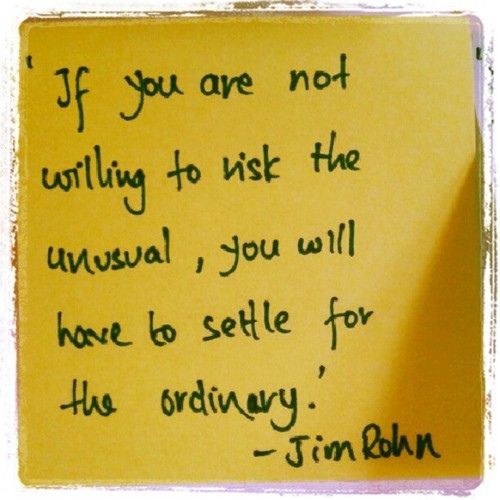 'If you are not
willing to risk the
unusual, you will
have to settle for
the ordinary.'
- Jim Rohn